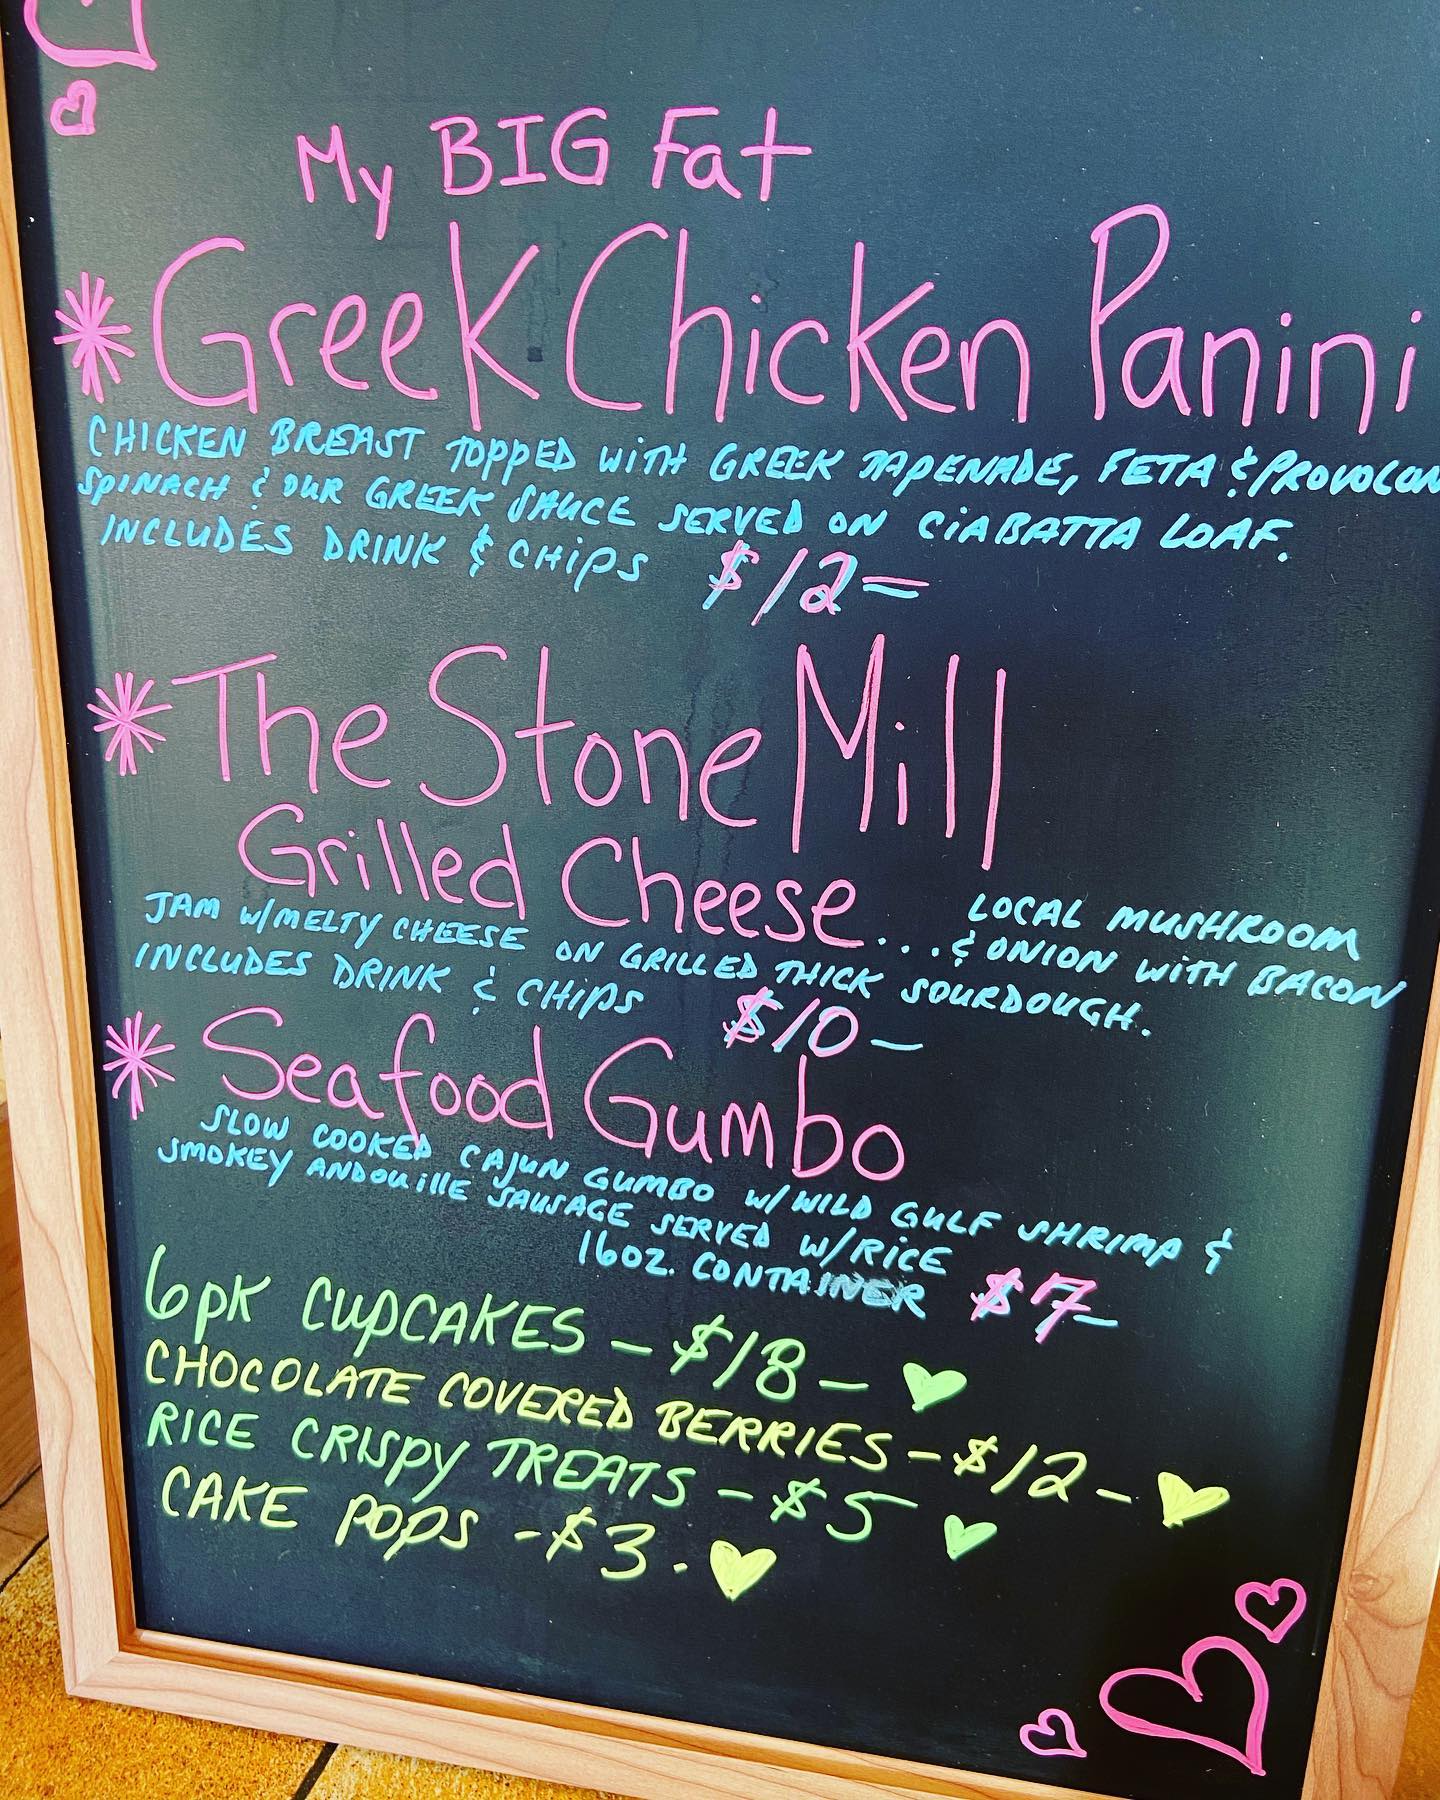 My BIG Fat
*Greek Chicken Panini
CHICKEN BREAST TOPPED WITH GREEK TAPENADE, FETA & PROVOLON
SPINACH & OUR GREEK SAUCE SERVED ON CIABATTA LOAF.
INCLUDES DRINK & CHIPS $12=
*The Stone Mill
Grilled Cheese... LOCAL MUSHROOM
& ONION WITH BACON
JAM W/MELTY CHEESE ON GRILLED THICK SOURDOUGH.
INCLUDES DRINK & CHIPS $10-
*Seafood Gumbo
SLOW COOKED CAJUN GUMBO W/WILD GULF SHRIMP &
SMOKEY ANDOUILLE SAUSAGE SERVED W/RICE
16OZ. CONTAINER $7-
6pk CUPCAKES - $18 -
CHOCOLATE COVERED BERRIES - $12 -
RICE CRISPY TREATS - $5
CAKE POPS - $3.